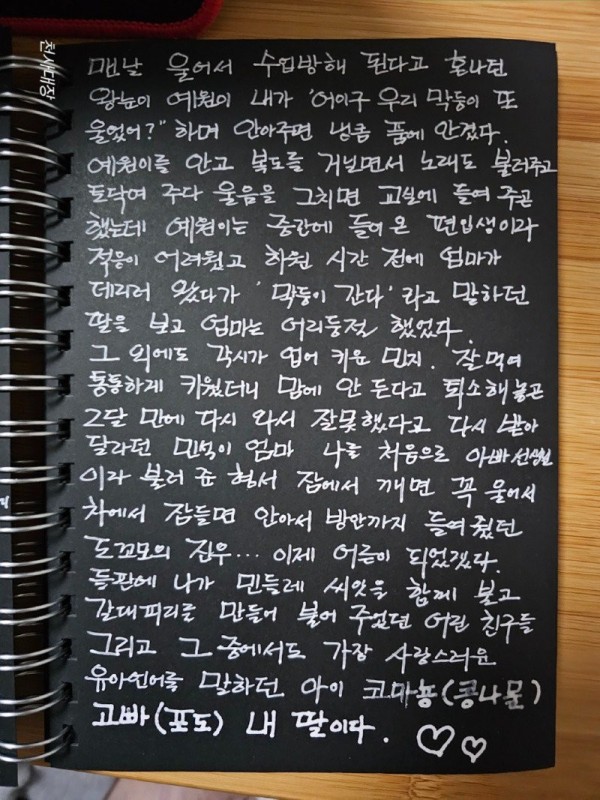 천사대장
맨날 울어서 수업방해 된다고 혼나던
왕눈이 예원이 내가 "어이구 우리 막둥이 또
울었어?" 하며 안아주면 냉큼 품에 안겼다.
예원이를 안고 복도를 거닐면서 노래도 불러주고
토닥여 주다 울음을 그치면 교실에 들여 주곤
했는데 예원이는 중간에 들어 온 편입생이라
적응이 어려웠고 하원 시간 전에 엄마가
데리러 왔다가 '막둥이 간다' 라고 말하던
딸을 보고 엄마는 어리둥절 했었다.
그 외에도 각시가 업어 키운 민지. 잘 먹여
통통하게 키웠더니 맘에 안 든다고 퇴소해 놓곤
2달 만에 다시 와서 잘못했다고 다시 받아
달라던 민석이 엄마 나를 처음으로 아빠 선생님
이라 불러 준 형서 잠에서 깨면 꼭 울어서
차에서 잠들면 안아서 방안까지 들여 줬던
도꼬모의 진우... 이제 어른이 되었겠다.
들판에 나가 민들레 씨앗을 함께 불고
갈대피리를 만들어 불어 주었던 어린 친구들
그리고 그 중에서도 가장 사랑스러운
유아언어를 말하던 아이 코마뇽(콩나물)
고빠(포도) 내 딸이다.